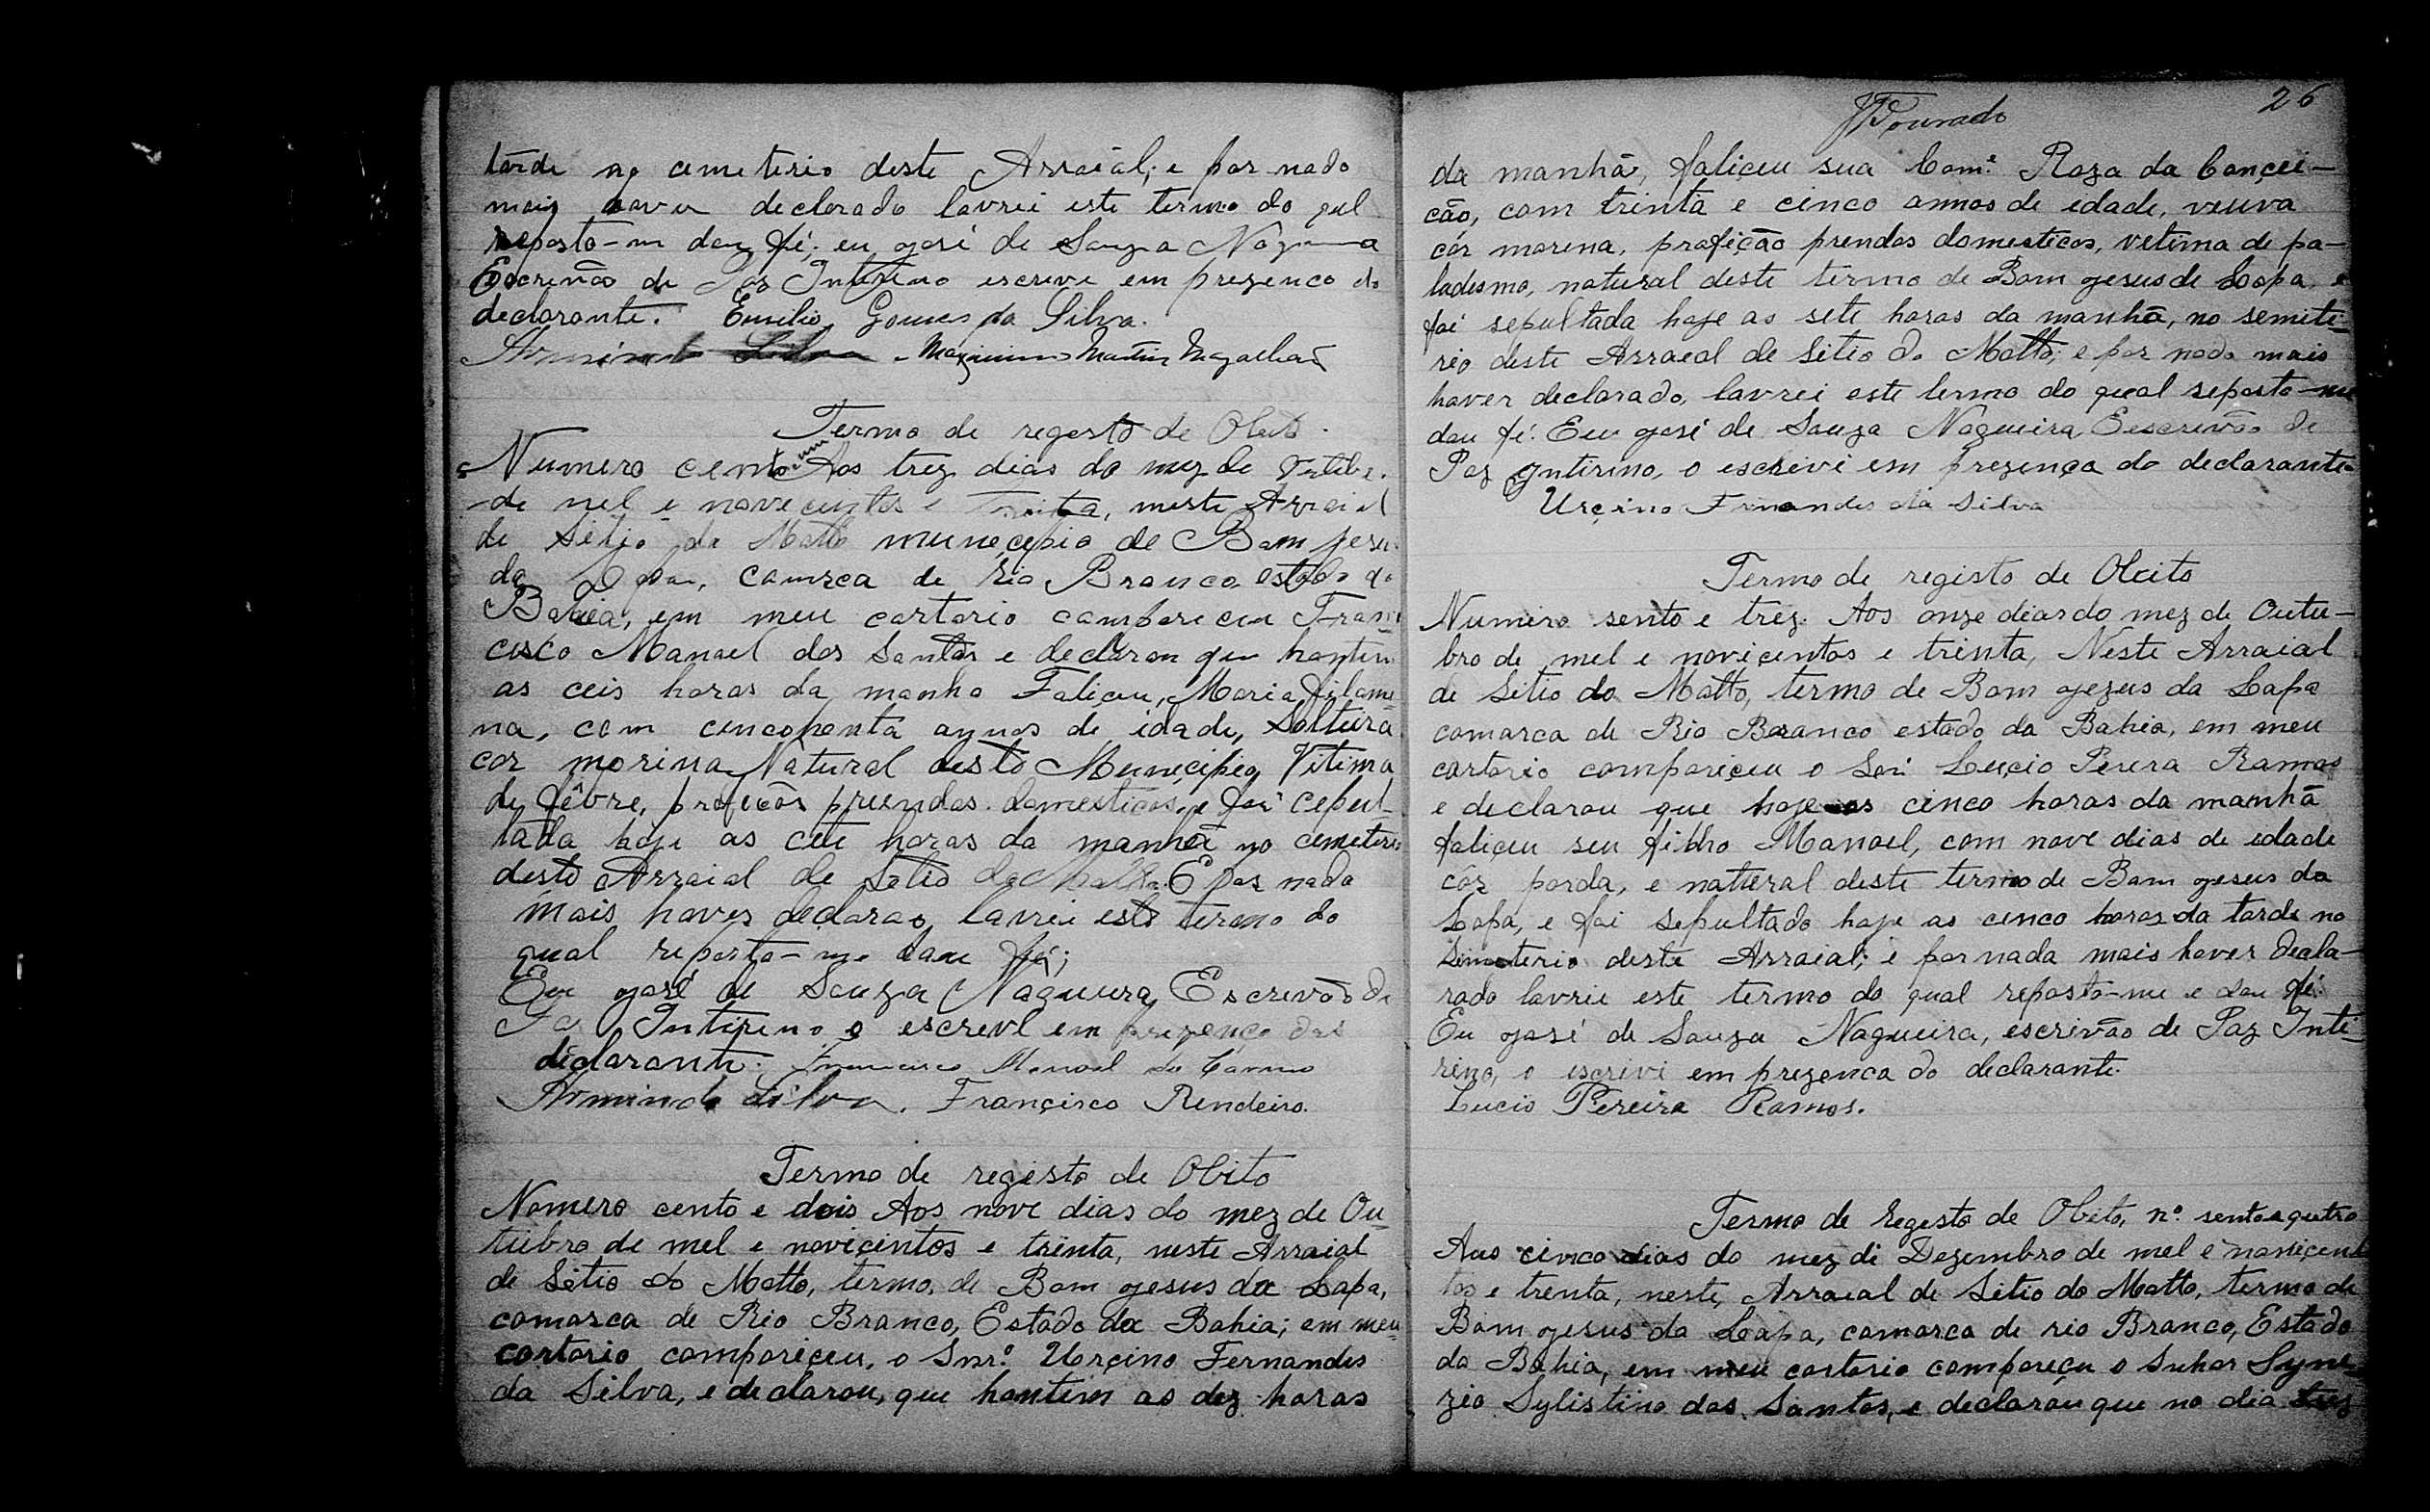 tarde no cemeterio deste Arraial; e por nado
mais haver declorado lavrei este termo do qul
reposto-m dou fé; eu José de Souza Nogueira
Escrevão de Paz Interino escreve em prezenco do
declarante. Emilio Gomes da Silva.
Armindo Silva Martins Magalhães
Termo de regesto de Obito.
Numero cento e um Aos trez dias do mez de
de mel e novecentos e Trinta, neste Arraial
de Sitio do Matto municepio de Bom Jesus
da Lapa, comrca de Rio Branco estado da
Bahia, em meu cartorio compareceu Fran
cisco Manoel dos Santos e declarou que hontem
as ceis horas da manha Faliceu, Maria filome
na, com cencohenta annos de idade, Soltura
cor morina Natural desto Municipio Vitima
de fêbre, profição prendas domesticas, e foi cepul-
tada hoje as cete horas da manhã no cemeterio
desto Arraial de Setio do Matto. E por nado
mais haver declarao, lavrei este termo do
qual reposto-me dau fé;
Eu José de Souza Nogueira Escrevão de
Paz Interino o escrevi em prezenço do
declarante. Francisco Manoel do Carmo
Armindo Silva. Françisco Rendeiro.
Termo de regesto de Obito
Nomero cento e dois Aos nove dias do mez de Ou
tubro de mel e noviçintos e trinta, neste Arraial
de Sitio do Matto, termo de Bom Jesus da Lapa,
comarca de Rio Branco, Estado da Bahia; em meu
cortorio compariçeu, o Snr.º Urçino Fernandes
da Silva, e declarou, que hontem as dez horas
26
Dourado
da manhã, faliçeu sua Com.ª Roza da Conçei-
cão, com trinta e cinco annos de edade, veuva
cor morena, profição prendas domesticas, vetima de pa-
ludesmo, natural deste termo de Bom Jesus de Lapa, e
foi sepultada hoje as sete horas da manhã, no semite-
rio deste Arraeal de Sitio do Matto; e por nado mais
haver declarado, lavrei este termo do qual reposto-me
dou fé. Eu José de Souza Nogueira, Eescrevão de
Paz Intirino, o escrevi em prezença do declarante
Urçino Fernandes da Silva
Termo de registo de Obito
Numero sento e trez. Aos onze dias do mez de Outu-
bro de mel e noviçentos e trinta, Neste Arraial
de Sitio do Matto, termo de Bom Jezus da Lapa
comarca de Rio Branco estado da Bahia, em meu
cartorio compariçeu o Snr. Luçio Perera Ramos
e declarou que hoje as cinco horas da manhã
faliçeu seu filho Manoel, com nove dias de edade
côr parda, e natural deste termo de Bom Jesus da
Lapa, e foi sepultado hoje as cinco horas da tarde no
Simeterio deste Arraial; e por nada mais haver decla-
rado lavrie este termo do qual reposto-me e dou fé.
Eu José de Souza Nogueira, escrivão de Paz Inti-
rino, o escrivi em prezenca do declarante.
Lucio Pereira Ramos.
Termo de Regesto de Obito, nº. sento e qutro
Aus cinco dias do mez di Dezembro de mel e noviçent
tos e trenta, neste Arraial de Sitio do Matto, termo de
Bom Jesus da Lapa, comarca de rio Branco, Estado
da Bahia, em meu cortorio compareçu o Snhor Syne
zio Sylistino dos Santos, e declarou que no dia trez